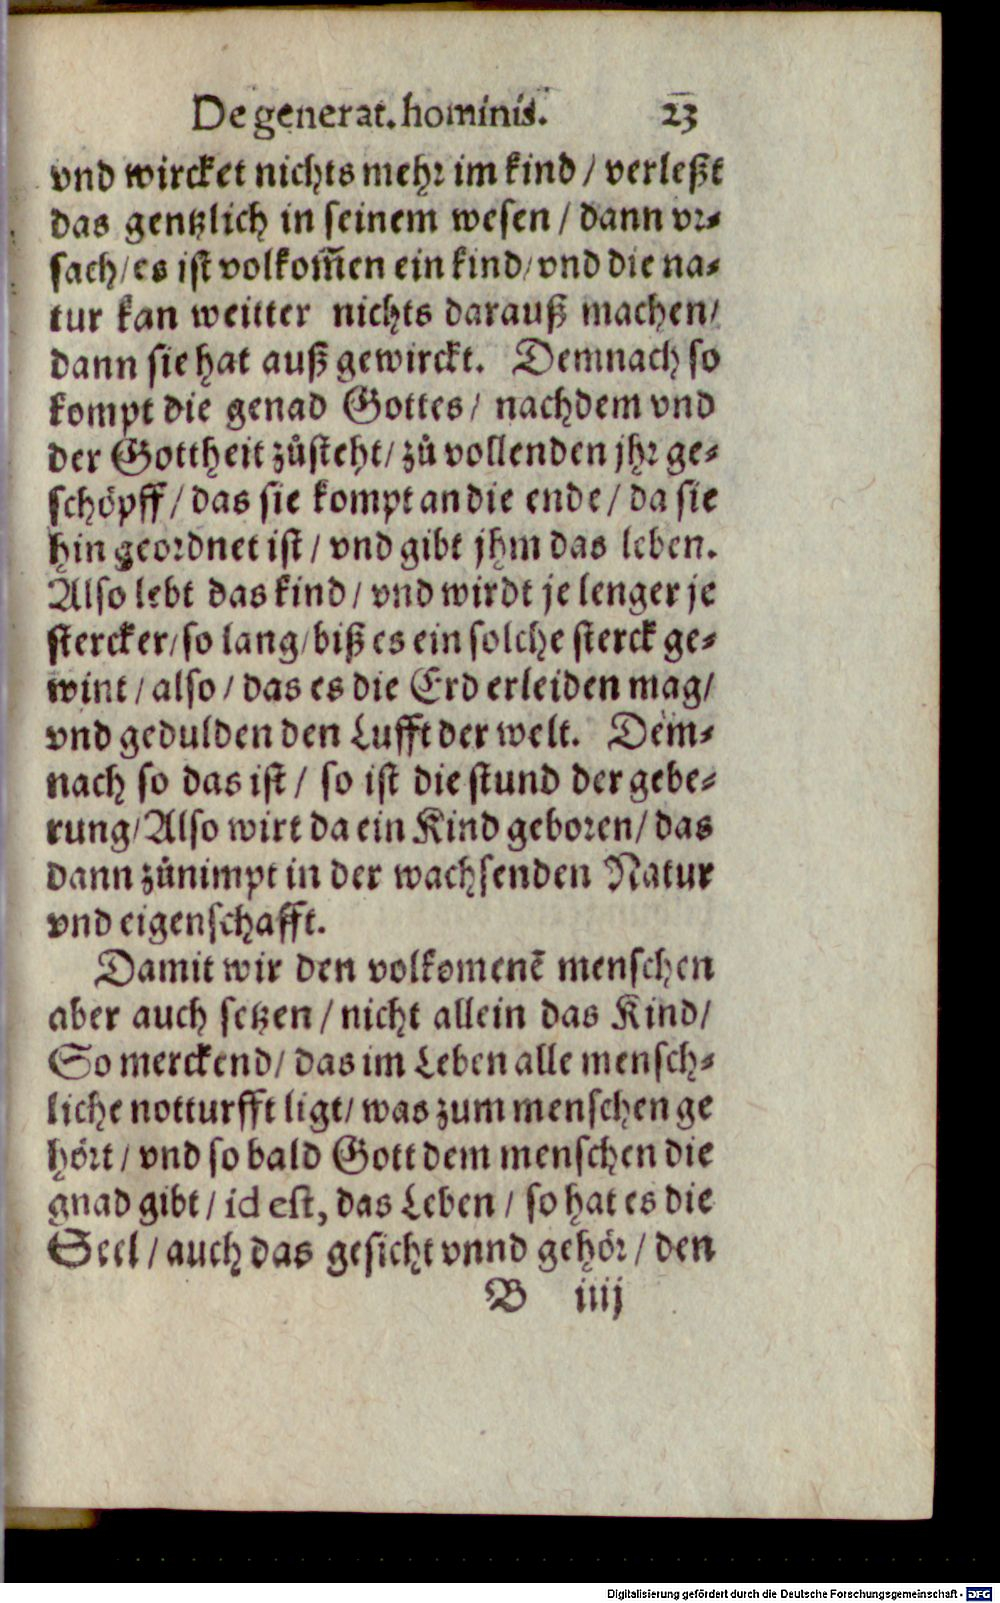 De generat. hominis. 23
vnd wircket nichts mehr im kind / verleßt
das gentzlich in seinem wesen / dann vr⸗
sach / es ist volkom̃en ein kind / vnd die na⸗
tur kan weitter nichts darauß machen /
dann sie hat auß gewirckt. Demnach so
kompt die genad Gottes / nachdem vnd
der Gottheit zůsteht / zů vollenden jhr ge⸗
schöpff / das sie kompt an die ende / da sie
hin geordnet ist / vnd gibt jhm das leben.
Also lebt das kind / vnd wirdt je lenger je
stercker / so lang / biß es ein solche sterck ge⸗
wint / also / das es die Erd erleiden mag /
vnd gedulden den Lufft der welt. Dem⸗
nach so das ist / so ist die stund der gebe⸗
rung / Also wirt da ein Kind geboren / das
dann zůnimpt in der wachsenden Natur
vnd eigenschafft.
Damit wir den volkomenē menschen
aber auch setzen / nicht allein das Kind /
So merckend / das im Leben alle mensch⸗
liche notturfft ligt / was zum menschen ge
hört / vnd so bald Gott dem menschen die
gnad gibt / id est, das Leben / so hat es die
Seel / auch das gesicht vnnd gehör / den
B iiij
Digitalisierung gefördert durch die Deutsche Forschungsgemeinschaft - DFG